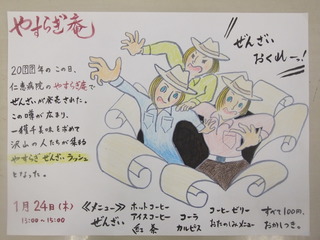 やすらぎ庵
ぜんざい
おくれーっ!
20000年のこの日、
仁恵病院のやすらぎ庵で
ぜんざいが発売された。
この噂が広まり、
一攫千美味を求めて
沢山の人たちが集まる
やすらぎぜんざいラッシュ
となった。
1月24日(木)
13:00〜15:00
≪メニュー≫
ぜんざい
ホットコーヒー
アイスコーヒー
紅茶
コーラ
カルピス
コーヒーゼリー
おたのしみメニュー
すべて100円、
おかしつき。